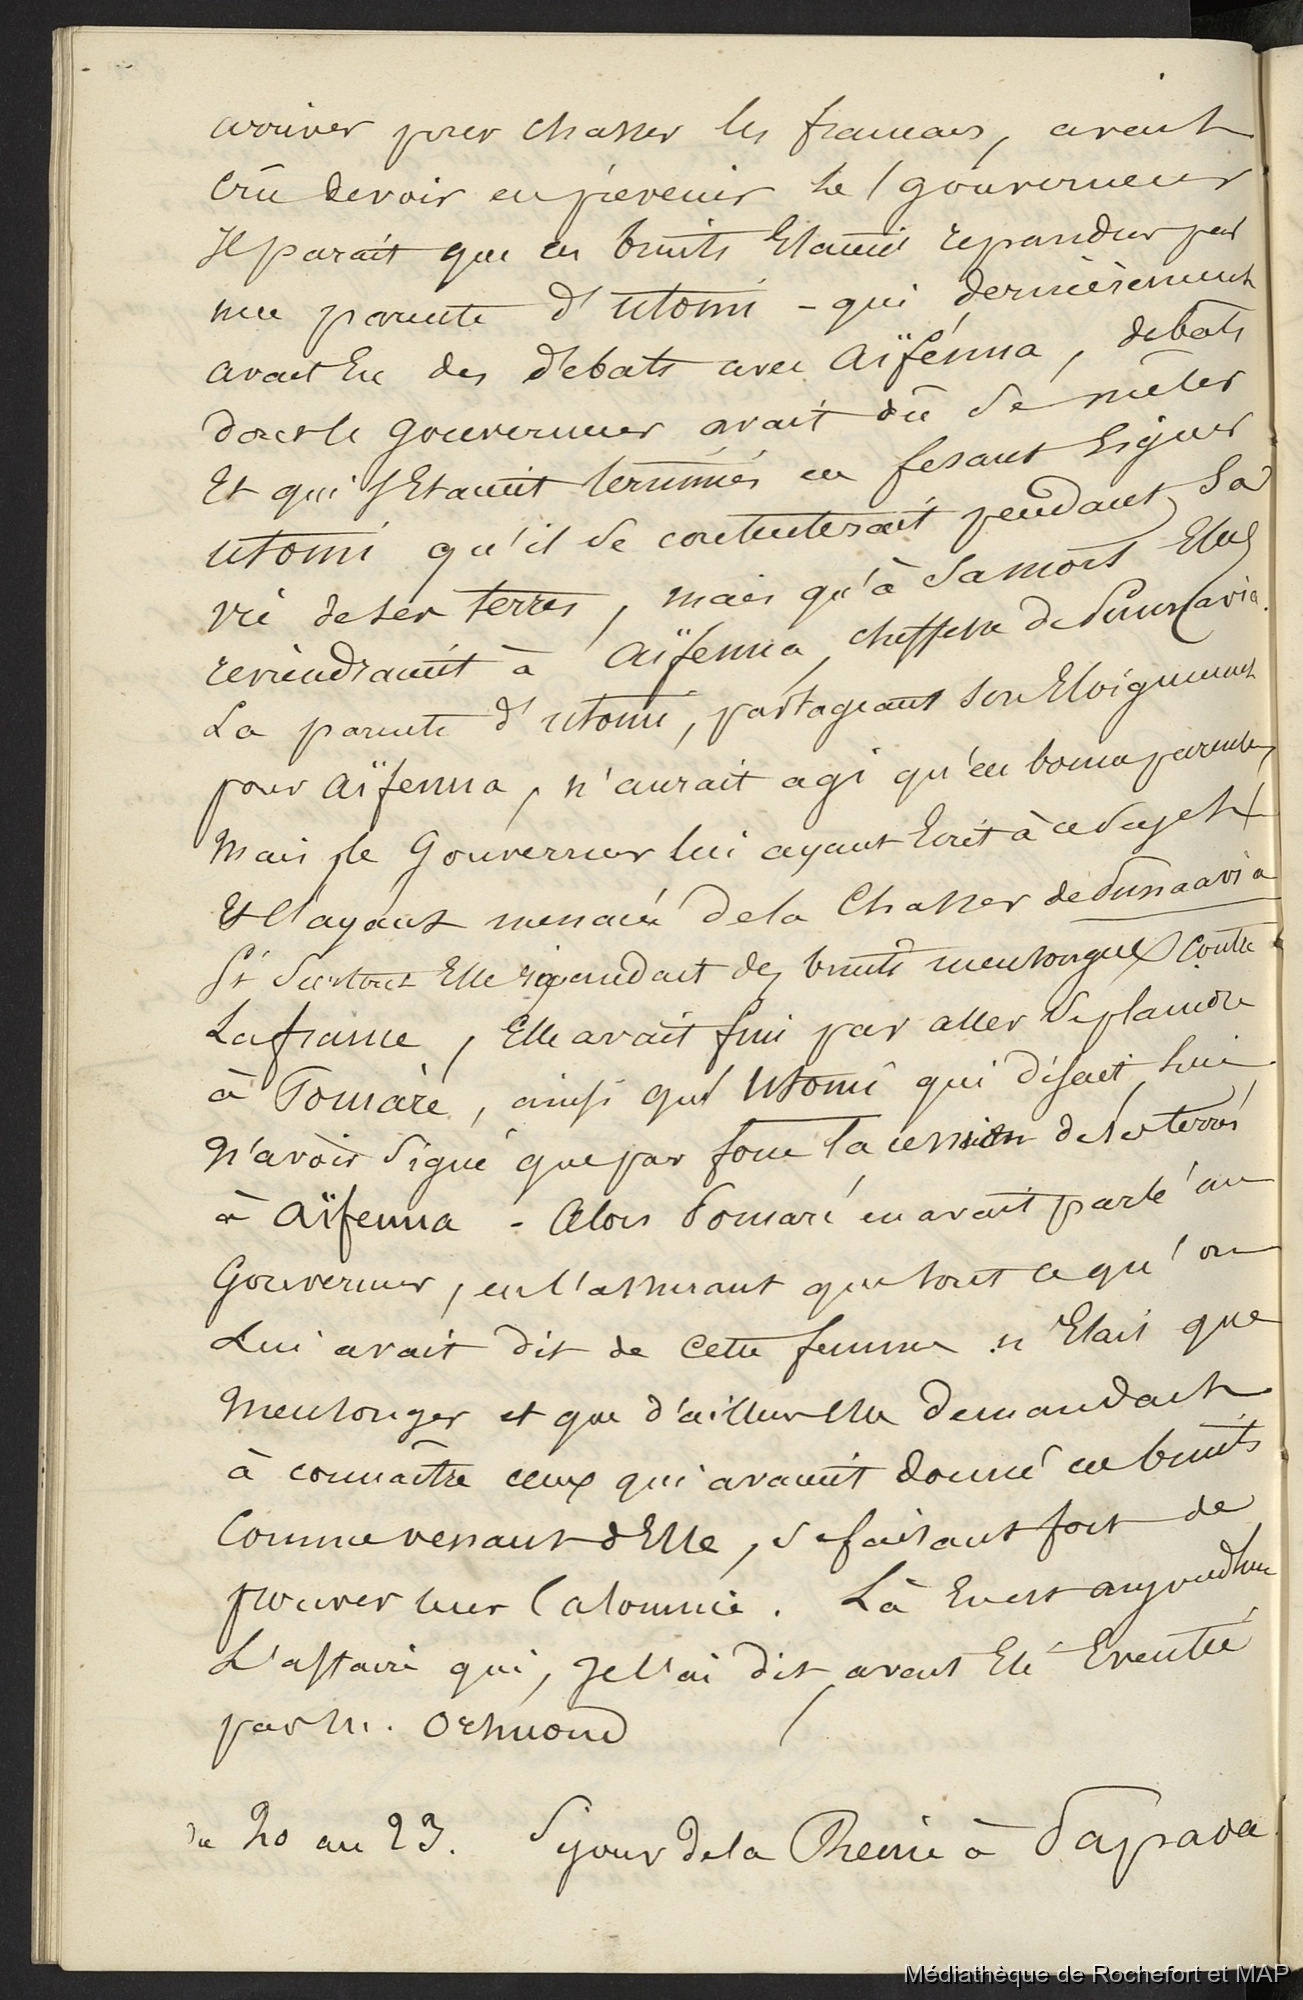 arriver pour chasser les francais, avait
crû devoir en prevenir le gouverneur
Il parait que ces bruits Etaient repandus par
une parente d'utomi - qui dernièrement
avait Eu des débats avec Aïfenna, debats
dont le gouverneur avait dû se mêler
Et qui s'Etaient terminés en fesant signer
utomi qu'il se contenterait pendant sa
vie de ses terres, mais qu'à sa mort Elles
reviendraient à Aïfenna, cheffesse de Punaavia.
La parente d'utomi, partageant son Eloignement
pour Aïfenna, n'aurait agi qu'en bonne parente,
Mais le Gouverneur lui ayant Ecrit à ce sujet
Et l'ayant menacée de la chasser de Punaavia
Si surtout Elle répandait des bruits mensongers contre
La france, Elle avait fini par aller se plaindre
à Pomaré, ainsi que Utomi qui disait, lui
N'avoir signé que par force la cession de ses terres
à Aïfenna - Alors Pomaré en avait parlé au
Gouverneur, en l'assurant que tout ce qu'on
Lui avait dit de cette femme n'Etait que
Mensonges et que d'ailleurs Elle demandait
à connaître ceux qui avaient donné ces bruits
Comme venant d'Elle, se faisant fort de
prouver leur Calomnie. Là En est aujourdhui
L'affaire qui, je l'ai dit, avait Eté Eventée
par M. Ormond
du 20 au 23. Séjour de la Reine à Papara.
Médiathèque de Rochefort et MAP